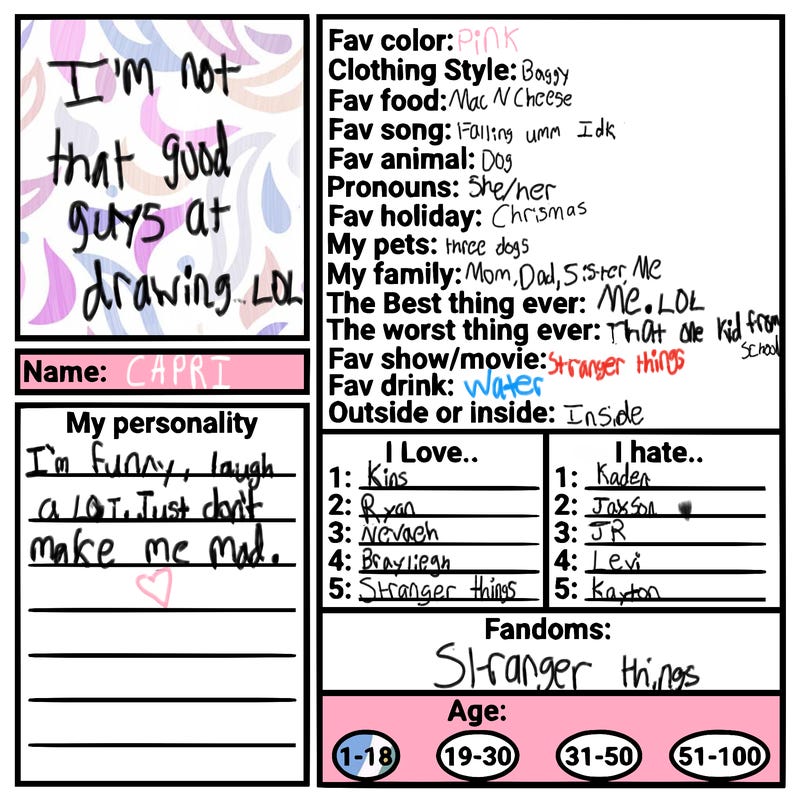 I'm not
that good
guys at
drawing..LOL
Name: CAPRI
My personality
I'm funny, laugh
a LOT. Just don't
make me mad.
Fav color: Pink
Clothing Style: Baggy
Fav food: Mac N Cheese
Fav song: Falling umm Idk
Fav animal: Dog
Pronouns: She/her
Fav holiday: Chrismas
My pets: three dogs
My family: Mom, Dad, Sister, Me
The Best thing ever: Me. LOL
The worst thing ever: That one kid from
School
Fav show/movie: Stranger things
Fav drink: Water
Outside or inside: Inside
I Love..
1: Kins
2: Ryan
3: Nevaeh
4: Brayliegh
5: Stranger things
I hate..
1: Kaden
2: Jaxson
3: JR
4: Levi
5: Kayton
Fandoms:
Stranger things
Age:
1-18 19-30 31-50 51-100